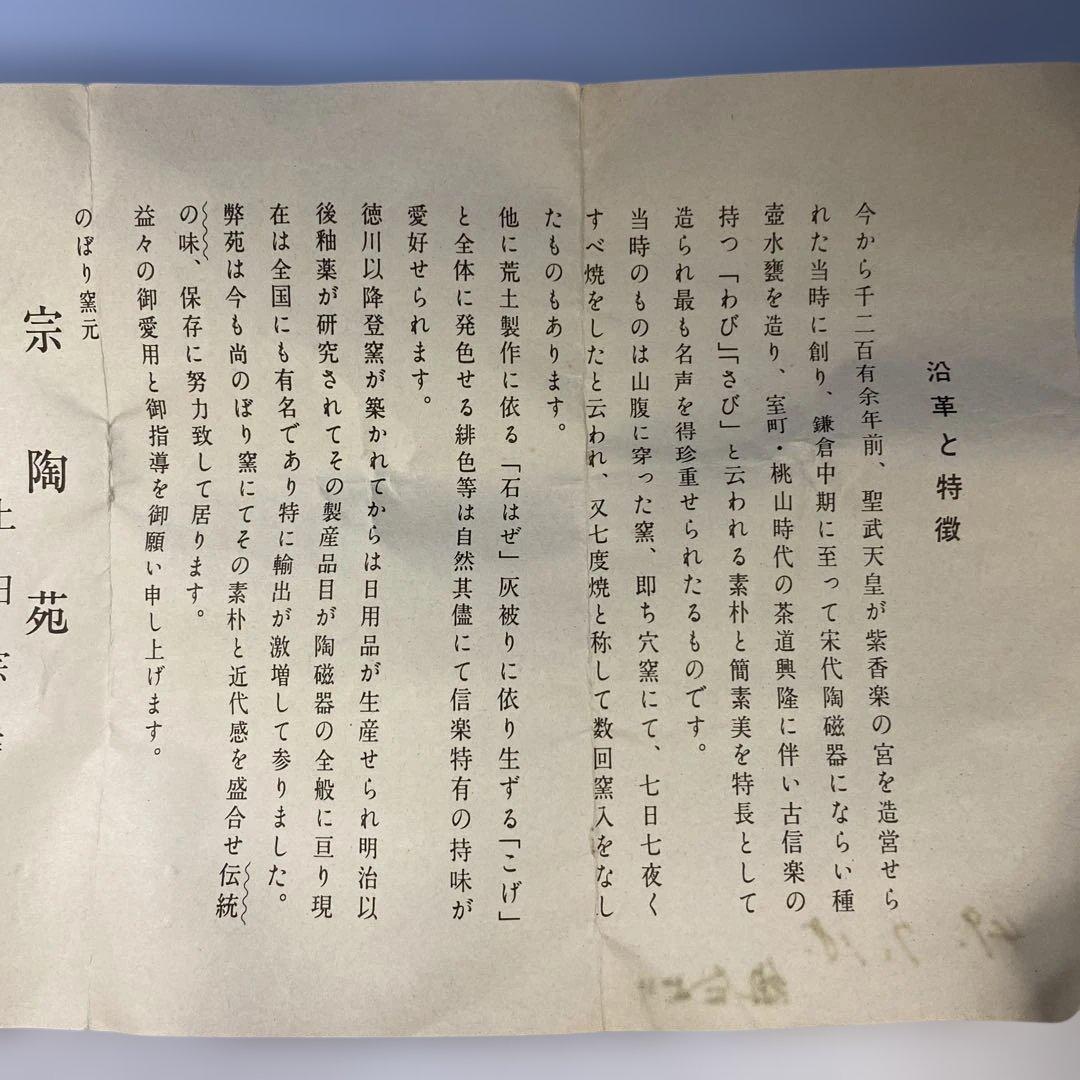 沿革と特徴
今から千二百有余年前、聖武天皇が紫香楽の宮を造営せら
れた当時に創り、鎌倉中期に至って宋代陶磁器にならい種
壺水甕を造り、室町・桃山時代の茶道興隆に伴い古信楽の
持つ「わび」「さび」と云われる素朴と簡素美を特長として
造られ最も名声を得珍重せられたるものです。
当時のものは山腹に穿った窯、即ち穴窯にて、七日七夜く
すべ焼をしたと云われ、又七度焼と称して数回窯入をなし
たものもあります。
他に荒土製作に依る「石はぜ」灰被りに依り生ずる「こげ」
と全体に発色せる緋色等は自然其儘にて信楽特有の持味が
愛好せられます。
徳川以降登窯が築かれてからは日用品が生産せられ明治以
後釉薬が研究されてその製産品目が陶磁器の全般に亘り現
在は全国にも有名であり特に輸出が激増して参りました。
弊苑は今も尚のぼり窯にてその素朴と近代感を盛合せ伝統
の味、保存に努力致して居ります。
益々の御愛用と御指導を御願い申し上げます。
のぼり窯元
宗陶苑
49.7.18.